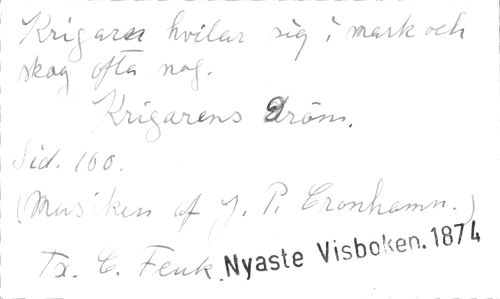 Krigaren hvilar sig i mark och
skog ofta nog.
Krigarens dröm.
Sid. 100.
(Musiken af J. P. Cronhamn.)
Tx. C. Fenk. Nyaste Visboken. 1874